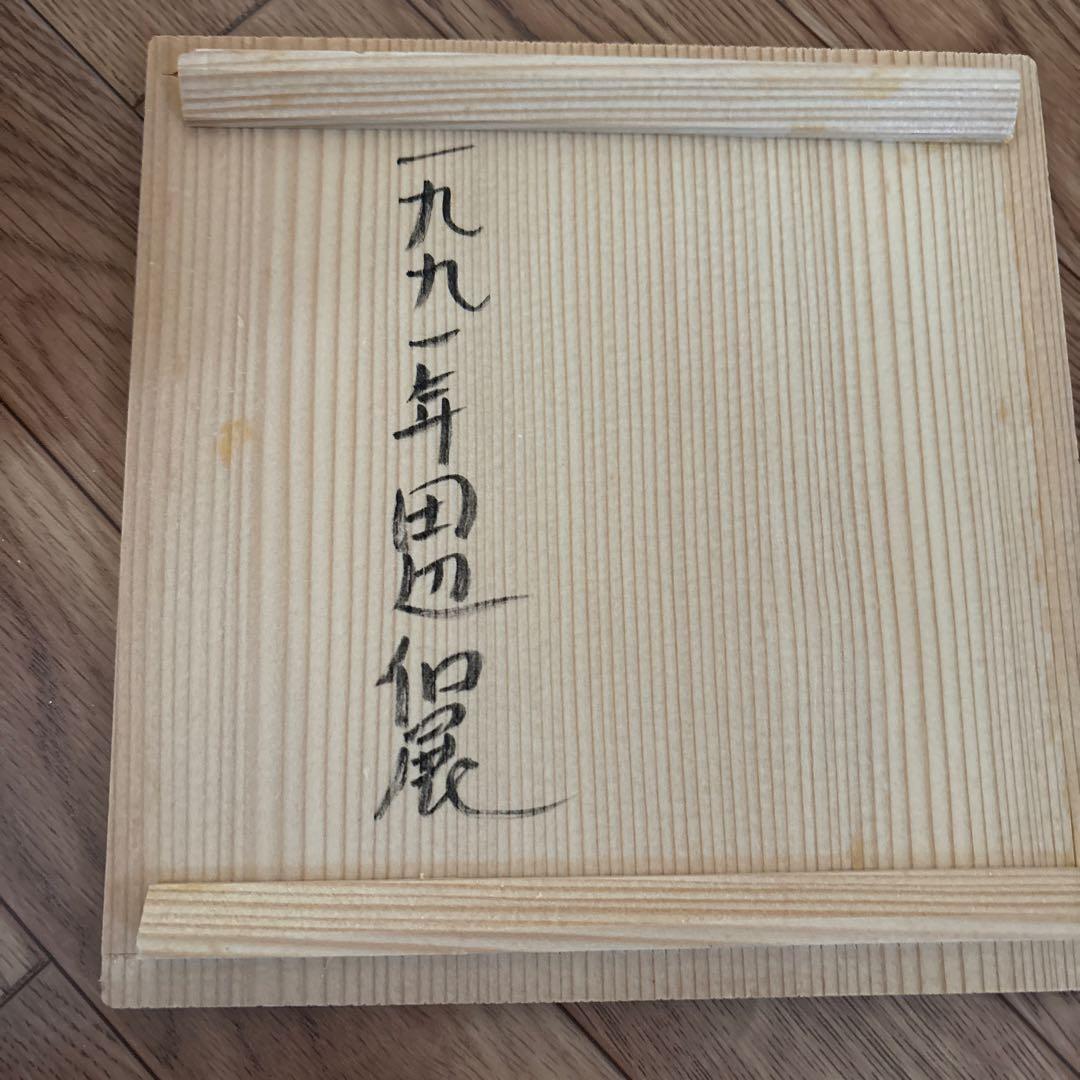 一九九一年田辺個展